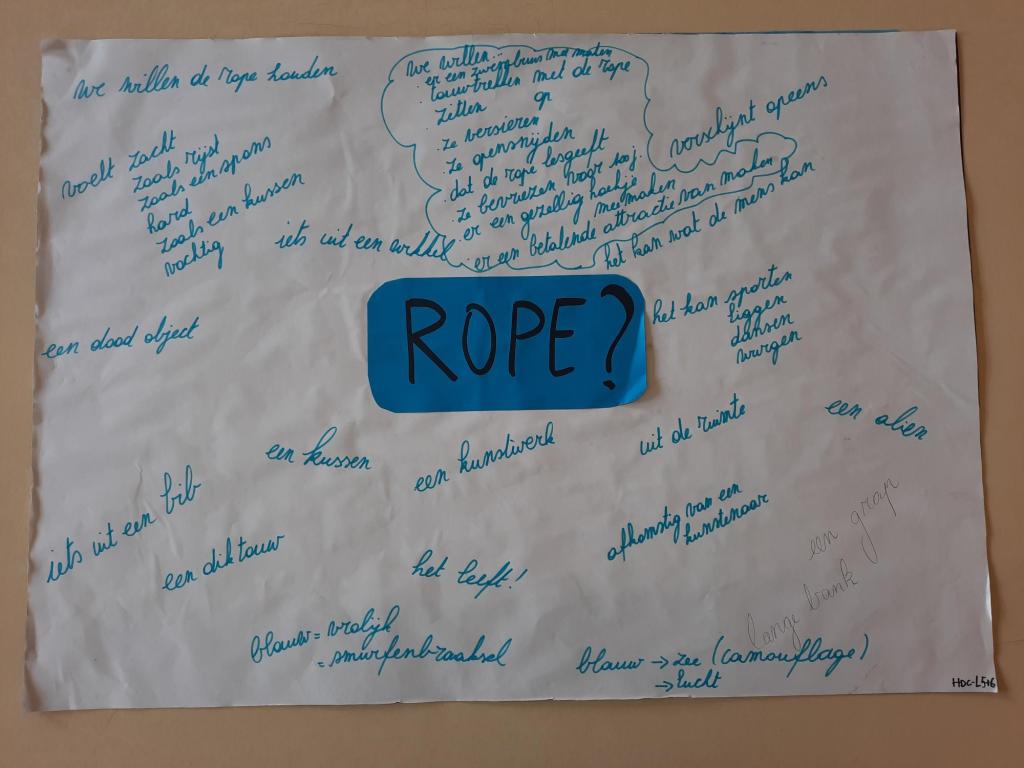 we willen de rope houden
we willen:
· er een zwembuis mee maken
· touwtrekken met de rope
· zitten op
· ze versieren
· ze opensnijden
dat de rope lesgeeft
· ze bevriezen voor 100j.
· er een gezellig hoekje mee maken
· er een betalende attractie van maken
verschijnt opeens
het kan wat de mens kan
voelt zacht
zoals rijst
zoals een spons
hard
zoals een kussen
vochtig
iets uit een winkel
een dood object
ROPE?
het kan sporten
liggen
dansen
wurgen
een kussen
een kunstwerk
uit de ruimte
een alien
iets uit een bib
een dik touw
het leeft!
afkomstig van een
kunstenaar
een grap
lange bank
blauw = vrolijk
= smurfenbraaksel
blauw → zee (camouflage)
→ lucht
HDC-L5+6